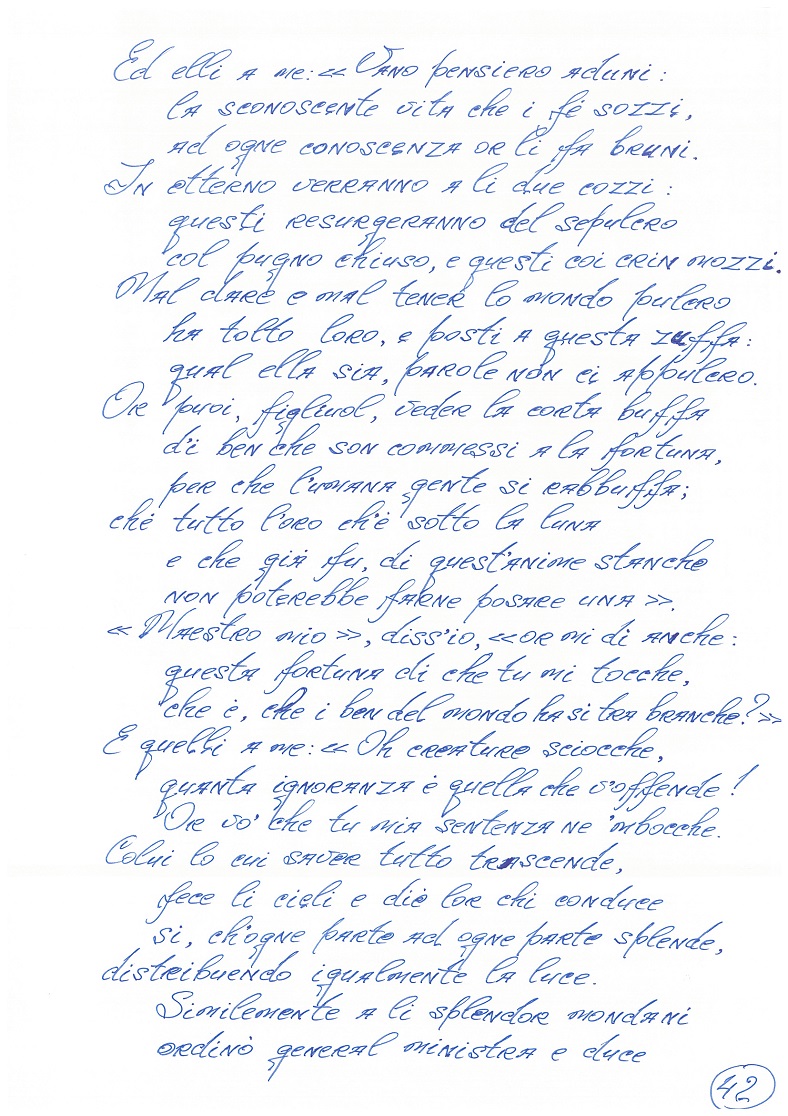 Ed elli a me: « Vano pensiero aduni:
la sconoscente vita che i fé sozzi,
ad ogne conoscenza or li fa bruni.
In etterno verranno a li due cozzi:
questi resurgeranno del sepulcro
col pugno chiuso, e questi coi crin mozzi.
Mal dare e mal tener lo mondo pulcro
ha tolto loro, e posti a questa zuffa:
qual ella sia, parole non ci appulcro.
Or puoi, figliuol, veder la corta buffa
d'i ben che son commessi a la fortuna,
per che l'umana gente si rabbuffa;
ché tutto l'oro ch'è sotto la luna
e che già fu, di quest'anime stanche
non poterebbe farne posare una ».
« Maestro mio », diss'io, « or mi di anche:
questa fortuna di che tu mi tocche,
che è, che i ben del mondo ha sì tra branche? »
E quelli a me: « Oh creature sciocche,
quanta ignoranza è quella che v'offende!
Or vo' che tu mia sentenza ne 'mbocche.
Colui lo cui saver tutto trascende,
fece li cieli e diè lor chi conduce
sì, ch'ogne parte ad ogne parte splende,
distribuendo igualmente la luce.
Similemente a li splendor mondani
ordinò general ministra e duce
42